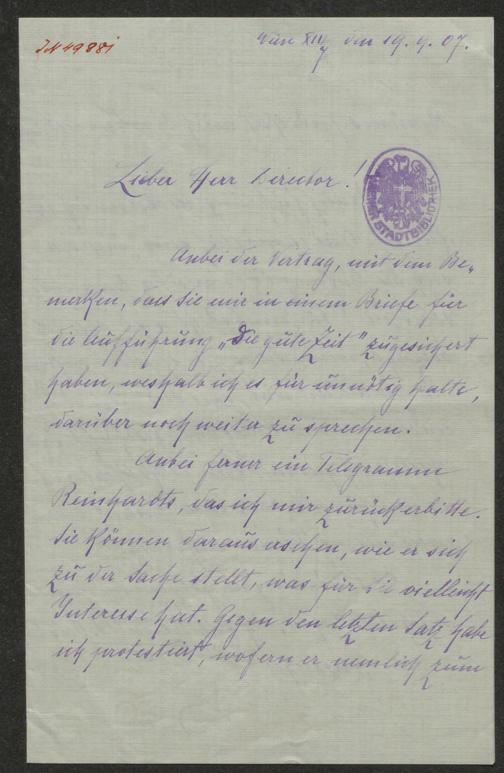 IN 49881
Wien XIII/7 den 19. 9. 07.
Lieber Herr Director!
WIENER STADTBIBLIOTHEK
Anbei der Vertrag, mit dem Be-
merken, dass Sie mir in einem Briefe für
die Aufführung „Die gute Zeit" zugesichert
haben, weshalb ich es für unnötig halte,
darüber noch weiter zu sprechen.
Anbei ferner ein Telegramm
Reinhardts, das ich mir zurückerbitte.
Sie können daraus ersehen, wie er sich
zu der Sache stellt, was für Sie vielleicht
Interesse hat. Gegen den letzten Satz habe
ich protestiert, wofern er nemlich zum